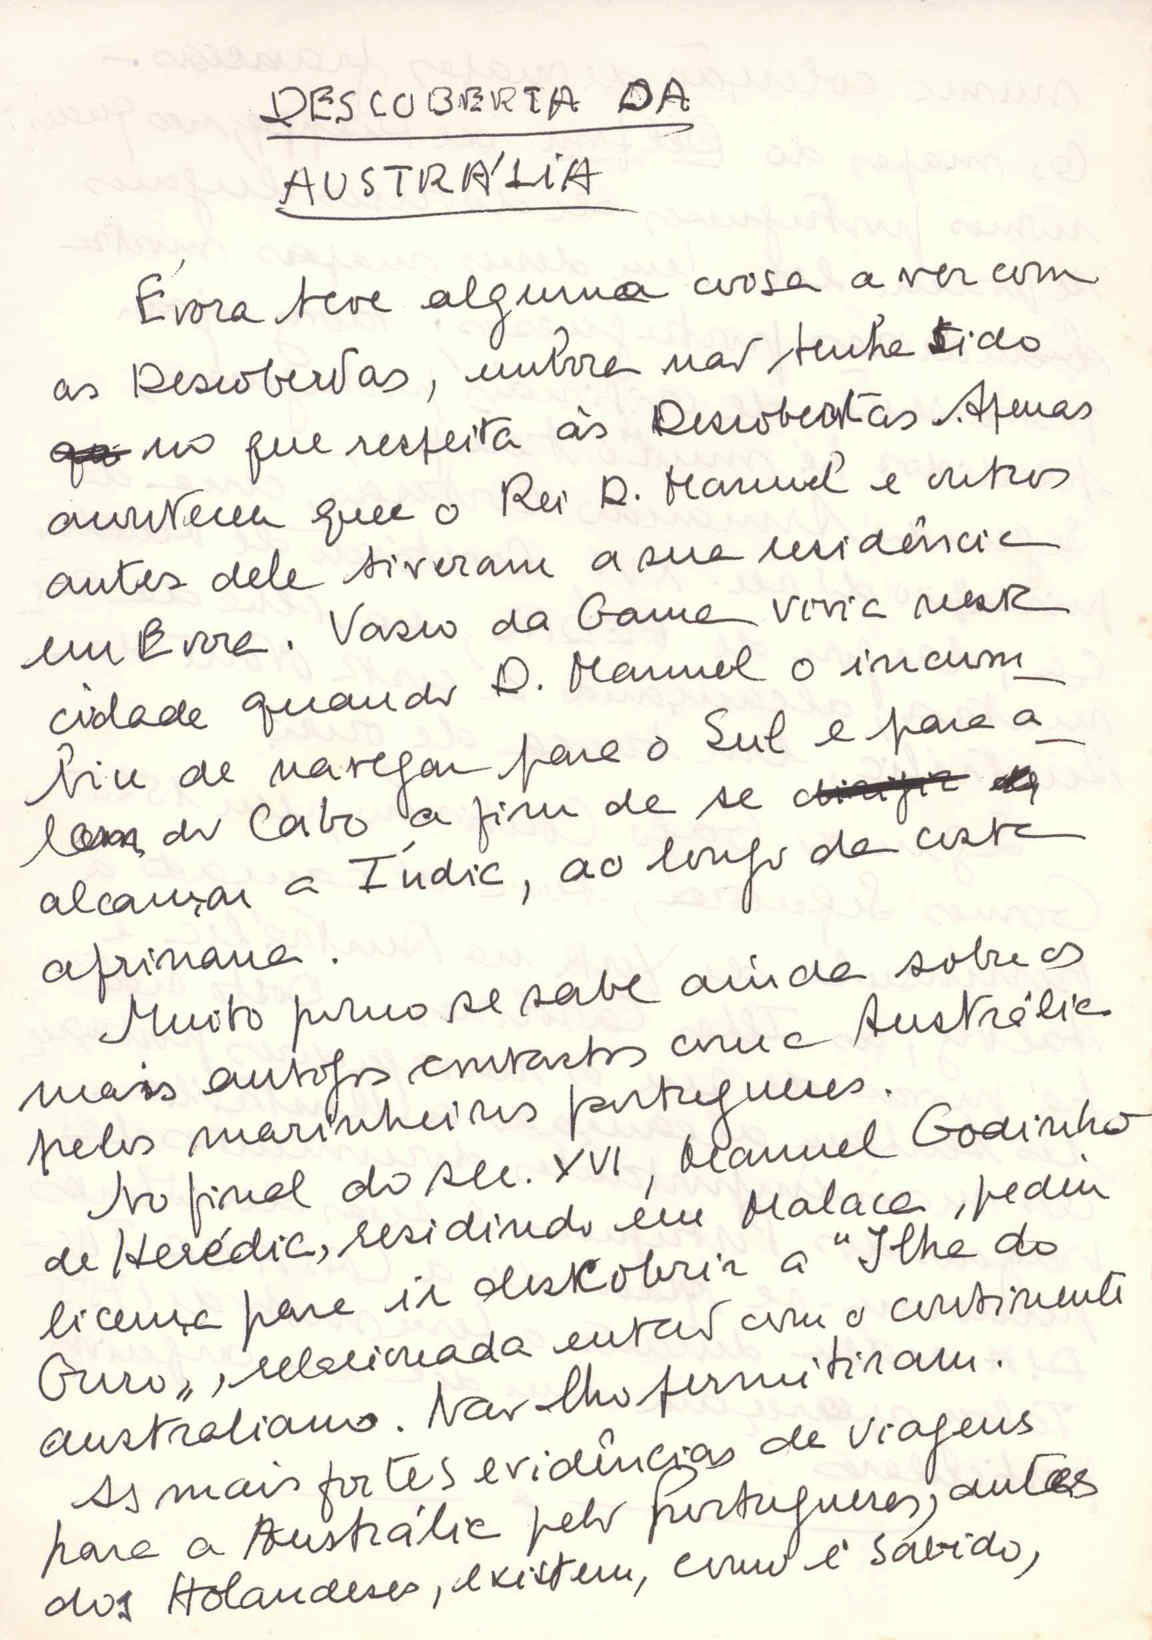 DESCOBERTA DA
AUSTRÁLIA
Évora teve alguma coisa a ver com
as Descobertas, embora não tenha tido
no que respeita às Descobertas. Apenas
aconteceu que o Rei D. Manuel e outros
antes dele tiveram a sua residência
em Évora. Vasco da Gama vivia nesta
cidade quando D. Manuel o incum-
biu de navegar para o Sul e para a-
lém do Cabo a fim de se
alcançar a Índia, ao longo da costa
africana.
Muito pouco se sabe ainda sobre os
mais antigos contactos com a Austrália
pelos marinheiros portugueses.
No final do séc. XVI, Manuel Godinho
de Herédia, residindo em Malaca, pediu
licença para ir descobrir a "Ilha do
Ouro", relacionada então com o continente
australiano. Não lho permitiram.
As mais fortes evidências de viagens
para a Austrália pelos Portugueses, antes
dos Holandeses, existem, como é sabido,